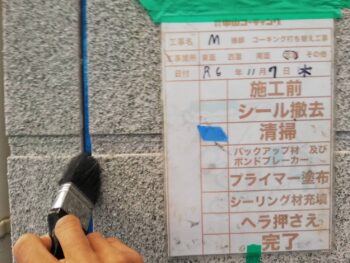 工事名 M 様邸 コーキング打ち替え工事
日付 R6 年 11 月 7 日 木
施工前
シール撤去
清掃
バックアップ材 及び
ボンドブレーカー
プライマー塗布
シーリング材充填
ヘラ押さえ
完了